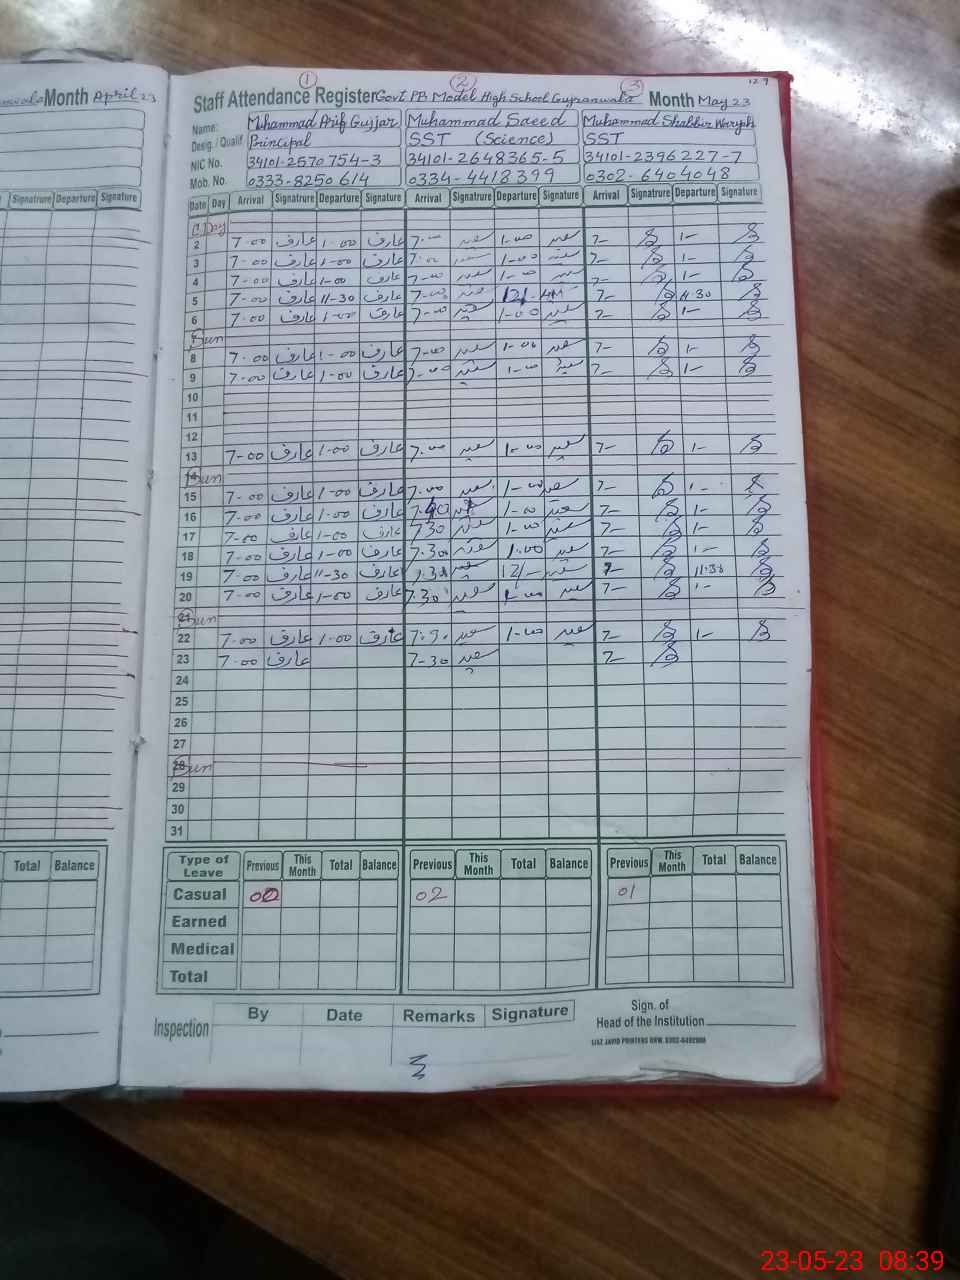 Month April 23
Staff Attendance Register Govt PB Model High School Gujranwala Month May 23
① ② ③
Name: Muhammad Arif Gujjar Muhammad Saeed Muhammad Shabbir
Desig. / Qualif Principal SST (Science) SST
NIC No. 34101-2570754-3 34101-2648365-5 34101-2396227-7
Mob. No. 0333-8250614 0334-4418399 0302-6904048
Signatrure Departure Signature
Date Day Arrival Signatrure Departure Signature Arrival Signatrure Departure Signature Arrival Signatrure Departure Signature
Day
2 7-00 عارف 1-00 عارف 7-00 سعید 1-00 سعید 7- 1-
3 7-00 عارف 1-00 عارف 7-00 سعید 1-00 سعید 7- 1-
4 7-00 عارف 1-00 عارف 7-00 سعید 1-00 سعید 7- 1-
5 7-00 عارف 11-30 عارف 7-00 سعید 7- 11-30
6 7-00 عارف 1-00 عارف 7-00 سعید 1-00 سعید 7- 1-
Sun
8 7-00 عارف 1-00 عارف 7-00 سعید 1-00 سعید 7- 1-
9 7-00 عارف 1-00 عارف 7-00 سعید 1-00 سعید 7- 1-
10
11
12
13 7-00 عارف 1-00 عارف 7-00 سعید 1-00 سعید 7- 1-
14 Sun
15 7-00 عارف 1-00 عارف 7-00 سعید 1-00 سعید 7- 1-
16 7-00 عارف 1-00 عارف سعید 1-00 سعید 7- 1-
17 7-00 عارف 1-00 عارف 730 سعید 1-00 سعید 7- 1-
18 7-00 عارف 1-00 عارف 7.30 سعید 1.00 سعید 7- 1-
19 7-00 عارف 11-30 عارف 7.30 سعید 12/- سعید 7- 11.30
20 7-00 عارف 1-00 عارف 7.30 سعید 1-00 سعید 7- 1-
21 Sun
22 7-00 عارف 1-00 عارف سعید 1-00 سعید 7- 1-
23 7-00 عارف 7-30 سعید 7-
24
25
26
27
28 Sun
29
30
31
Total Balance
Type of Leave Previous This Month Total Balance Previous This Month Total Balance Previous This Month Total Balance
Casual 02 01
Earned
Medical
Total
Inspection By Date Remarks Signature
Sign. of
Head of the Institution
23-05-23 08:39